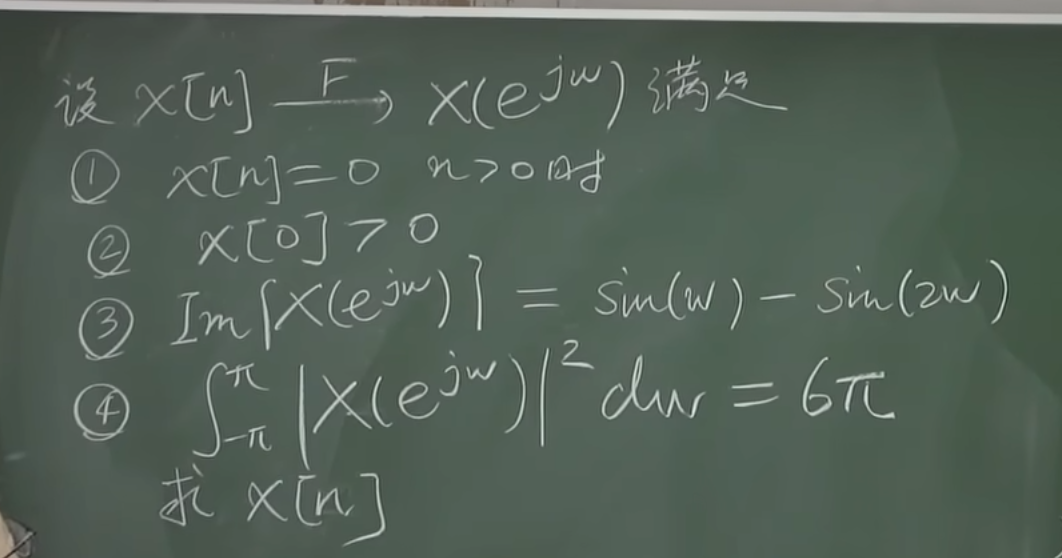 设 x[n] —F→ X(e^{jw}) 满足
① x[n]=0 n>0时
② x[0]>0
③ Im[X(e^{jw})] = sin(w) - sin(2w)
④ ∫_{-π}^{π} |X(e^{jw})|^2 dw = 6π
求 x[n]